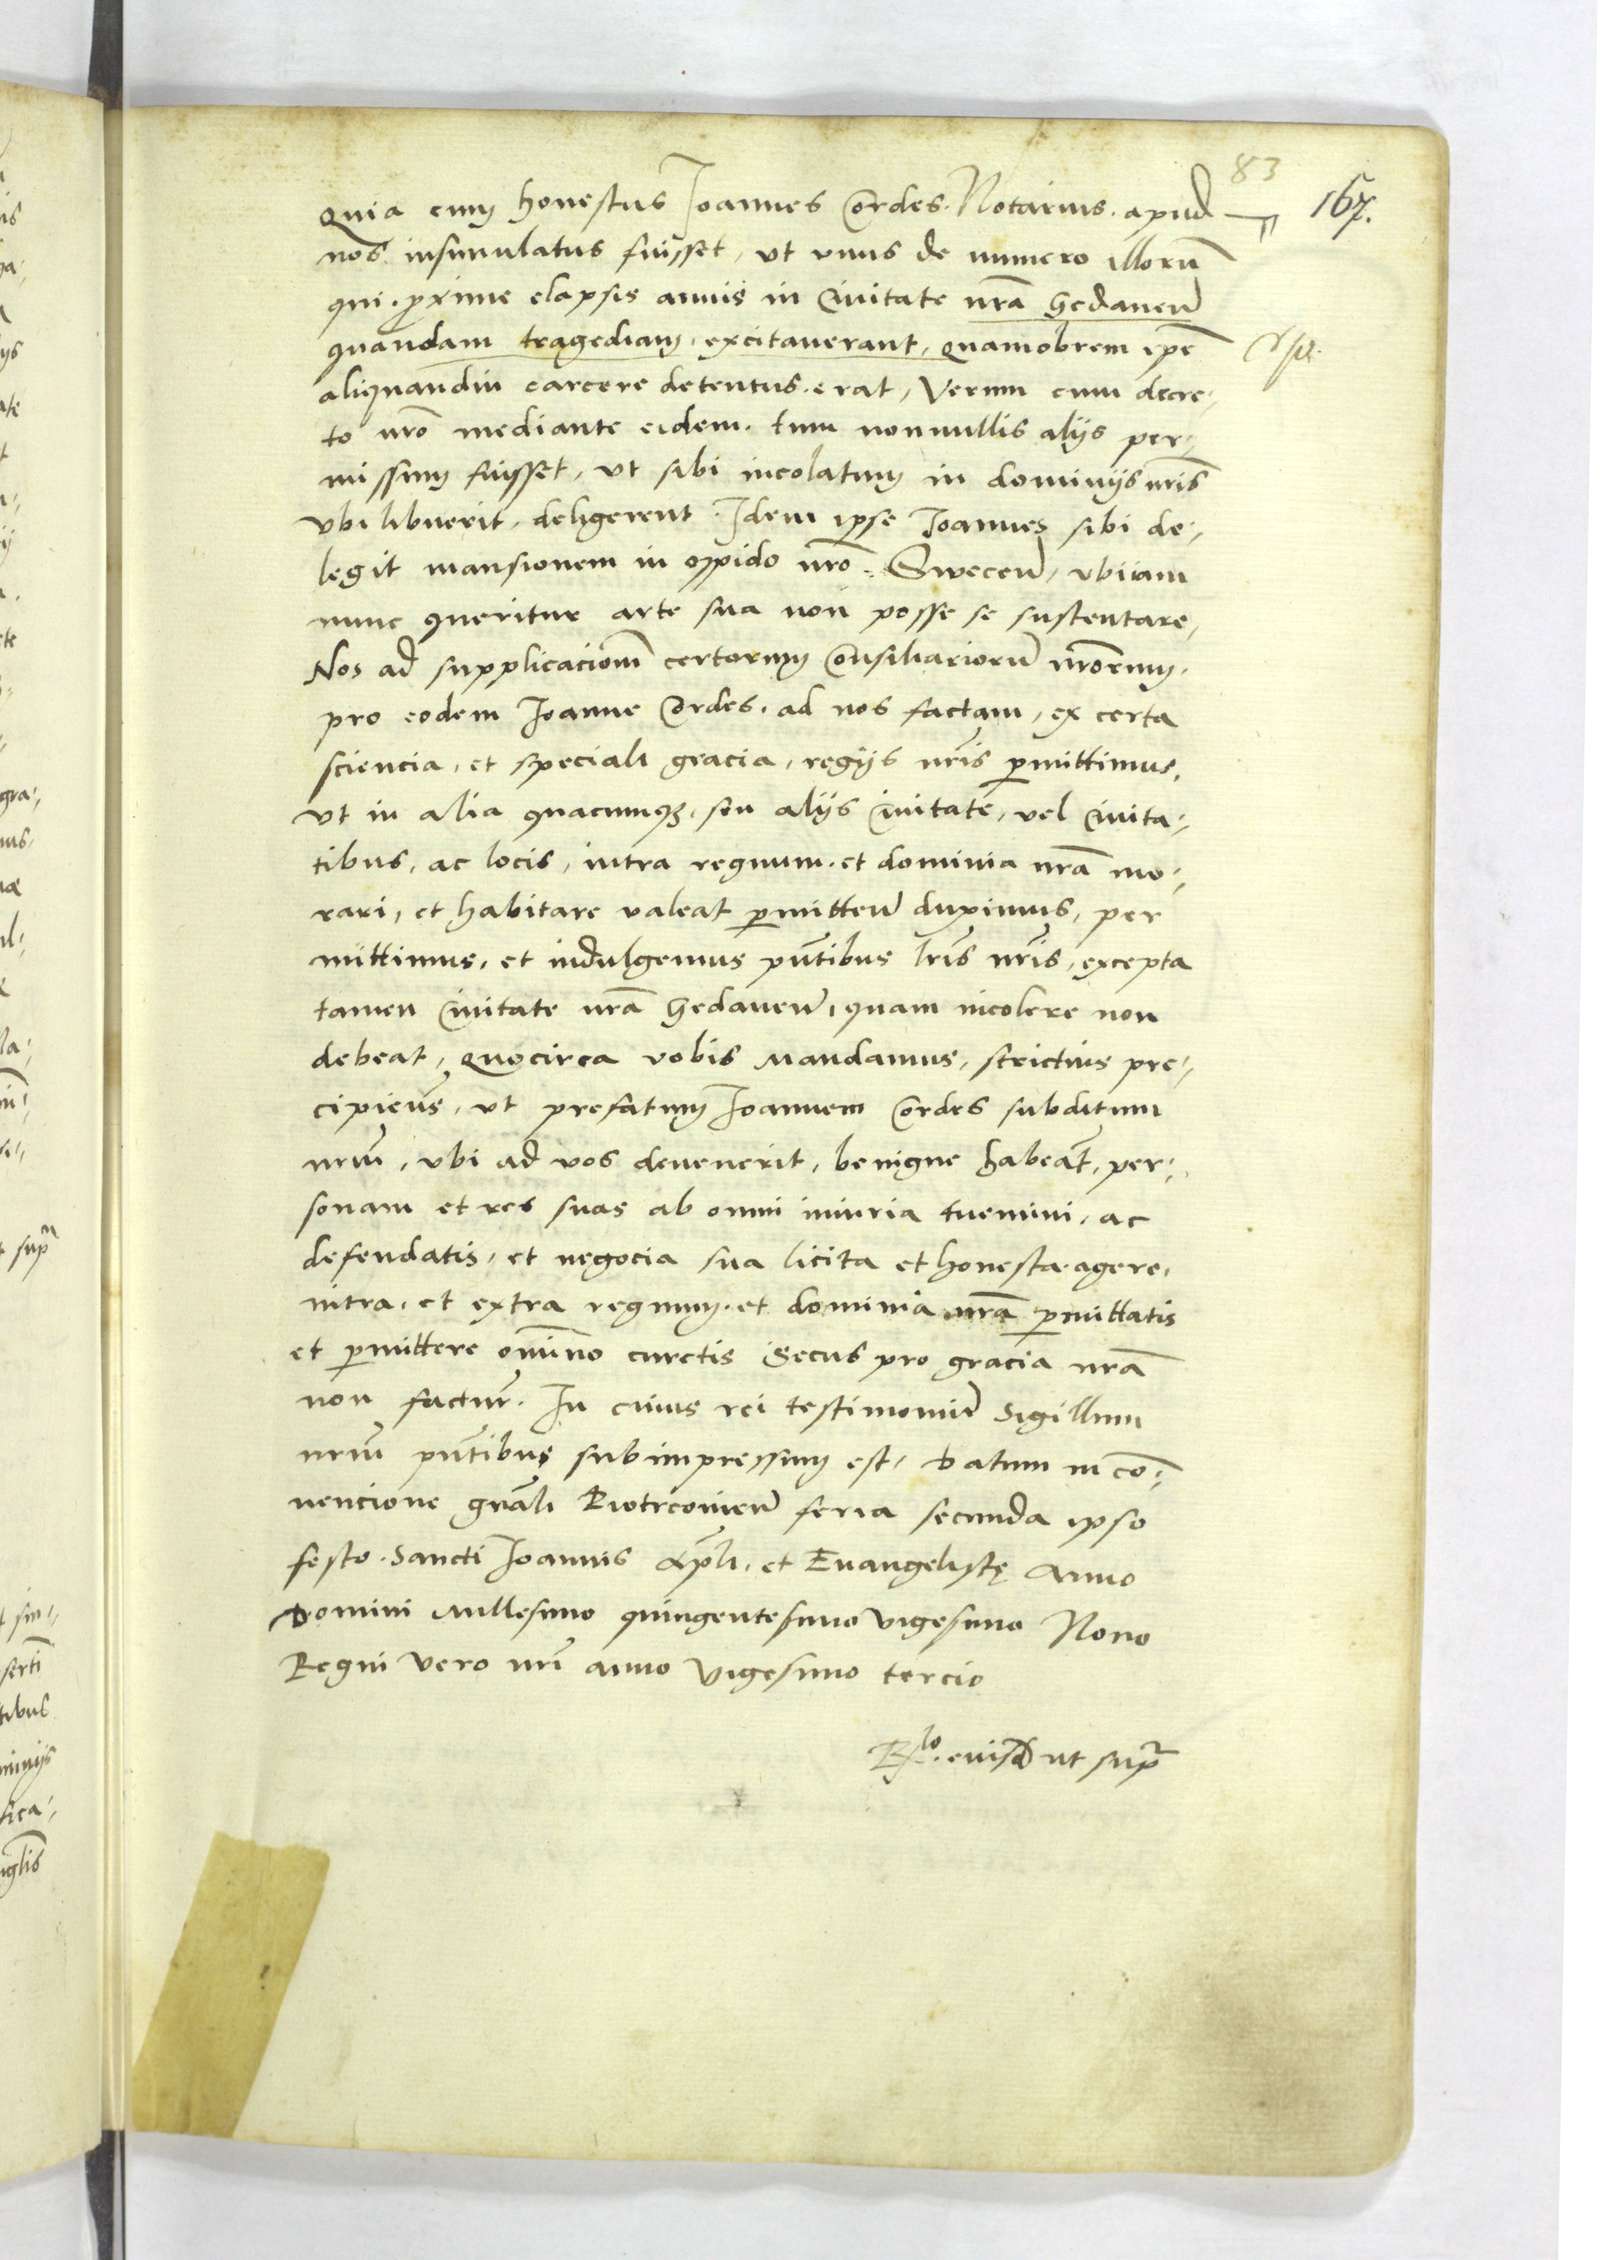 83
167.
Quia cum honestus Joannes Cordes Notarius apud
nos insimulatus fuisset, ut unus de numero illorũ
qui proxime elapsis annis in Civitate nrã Gedaneñ
quandam tragediam excitaverant, quamobrem ipẽ
aliquandiu carcere detentus erat, Verum cum decre-
to nrõ mediante eidem tum nonnullis aliis per-
missum fuisset, ut sibi incolatum in dominijs nrĩs
ubi libuerit, deligerent. Idem ipse Joannes sibi de-
legit mansionem in oppido nrõ Sweceñ, ubi iam
nunc queritur arte sua non posse se sustentare,
Nos ad supplicacionẽ certorum Consiliariorũ nrõrum
pro eodem Joanne Cordes ad nos factam, ex certa
sciencia, et speciali gracia, regijs nrĩs p̱mittimus,
ut in alia quacumqꝫ, seu alijs Civitate, vel Civita-
tibus, ac locis, intra regnum et dominia nrã mo-
rari, et habitare valeat p̱mitteñ duximus, per
mittimus, et indulgemus pñtibus lrĩs nrĩs, excepta
tamen Civitate nrã Gedaneñ, quam incolere non
debeat, Quocirca vobis Mandamus, strictius pre-
cipieñs, ut prefatum Joannem Cordes subditum
nrũm, ubi ad vos devenerit, benigne habeat̃, per-
sonam et res suas ab omni iniuria tuemini, ac
defendatis, et negocia sua licita et honesta agere,
intra, et extra regnum et dominia nrã p̱mittatis
et p̱mittere om̃ino curetis Secus pro gracia nrã
non factur̃. In cuius rei testimoniũ Sigillum
nrũm pñtibus subimpressum est, Datum in con-
vencione gñali Piotrcovieñ feria secunda ipso
festo Sancti Joannis Ap̃li, et Evangelistę Anno
Domini Millesimo quingentesimo vigesimo Nono
Regni vero nrĩ anno Vigesimo tercio
R̃lo eiusd̃ ut sup̃